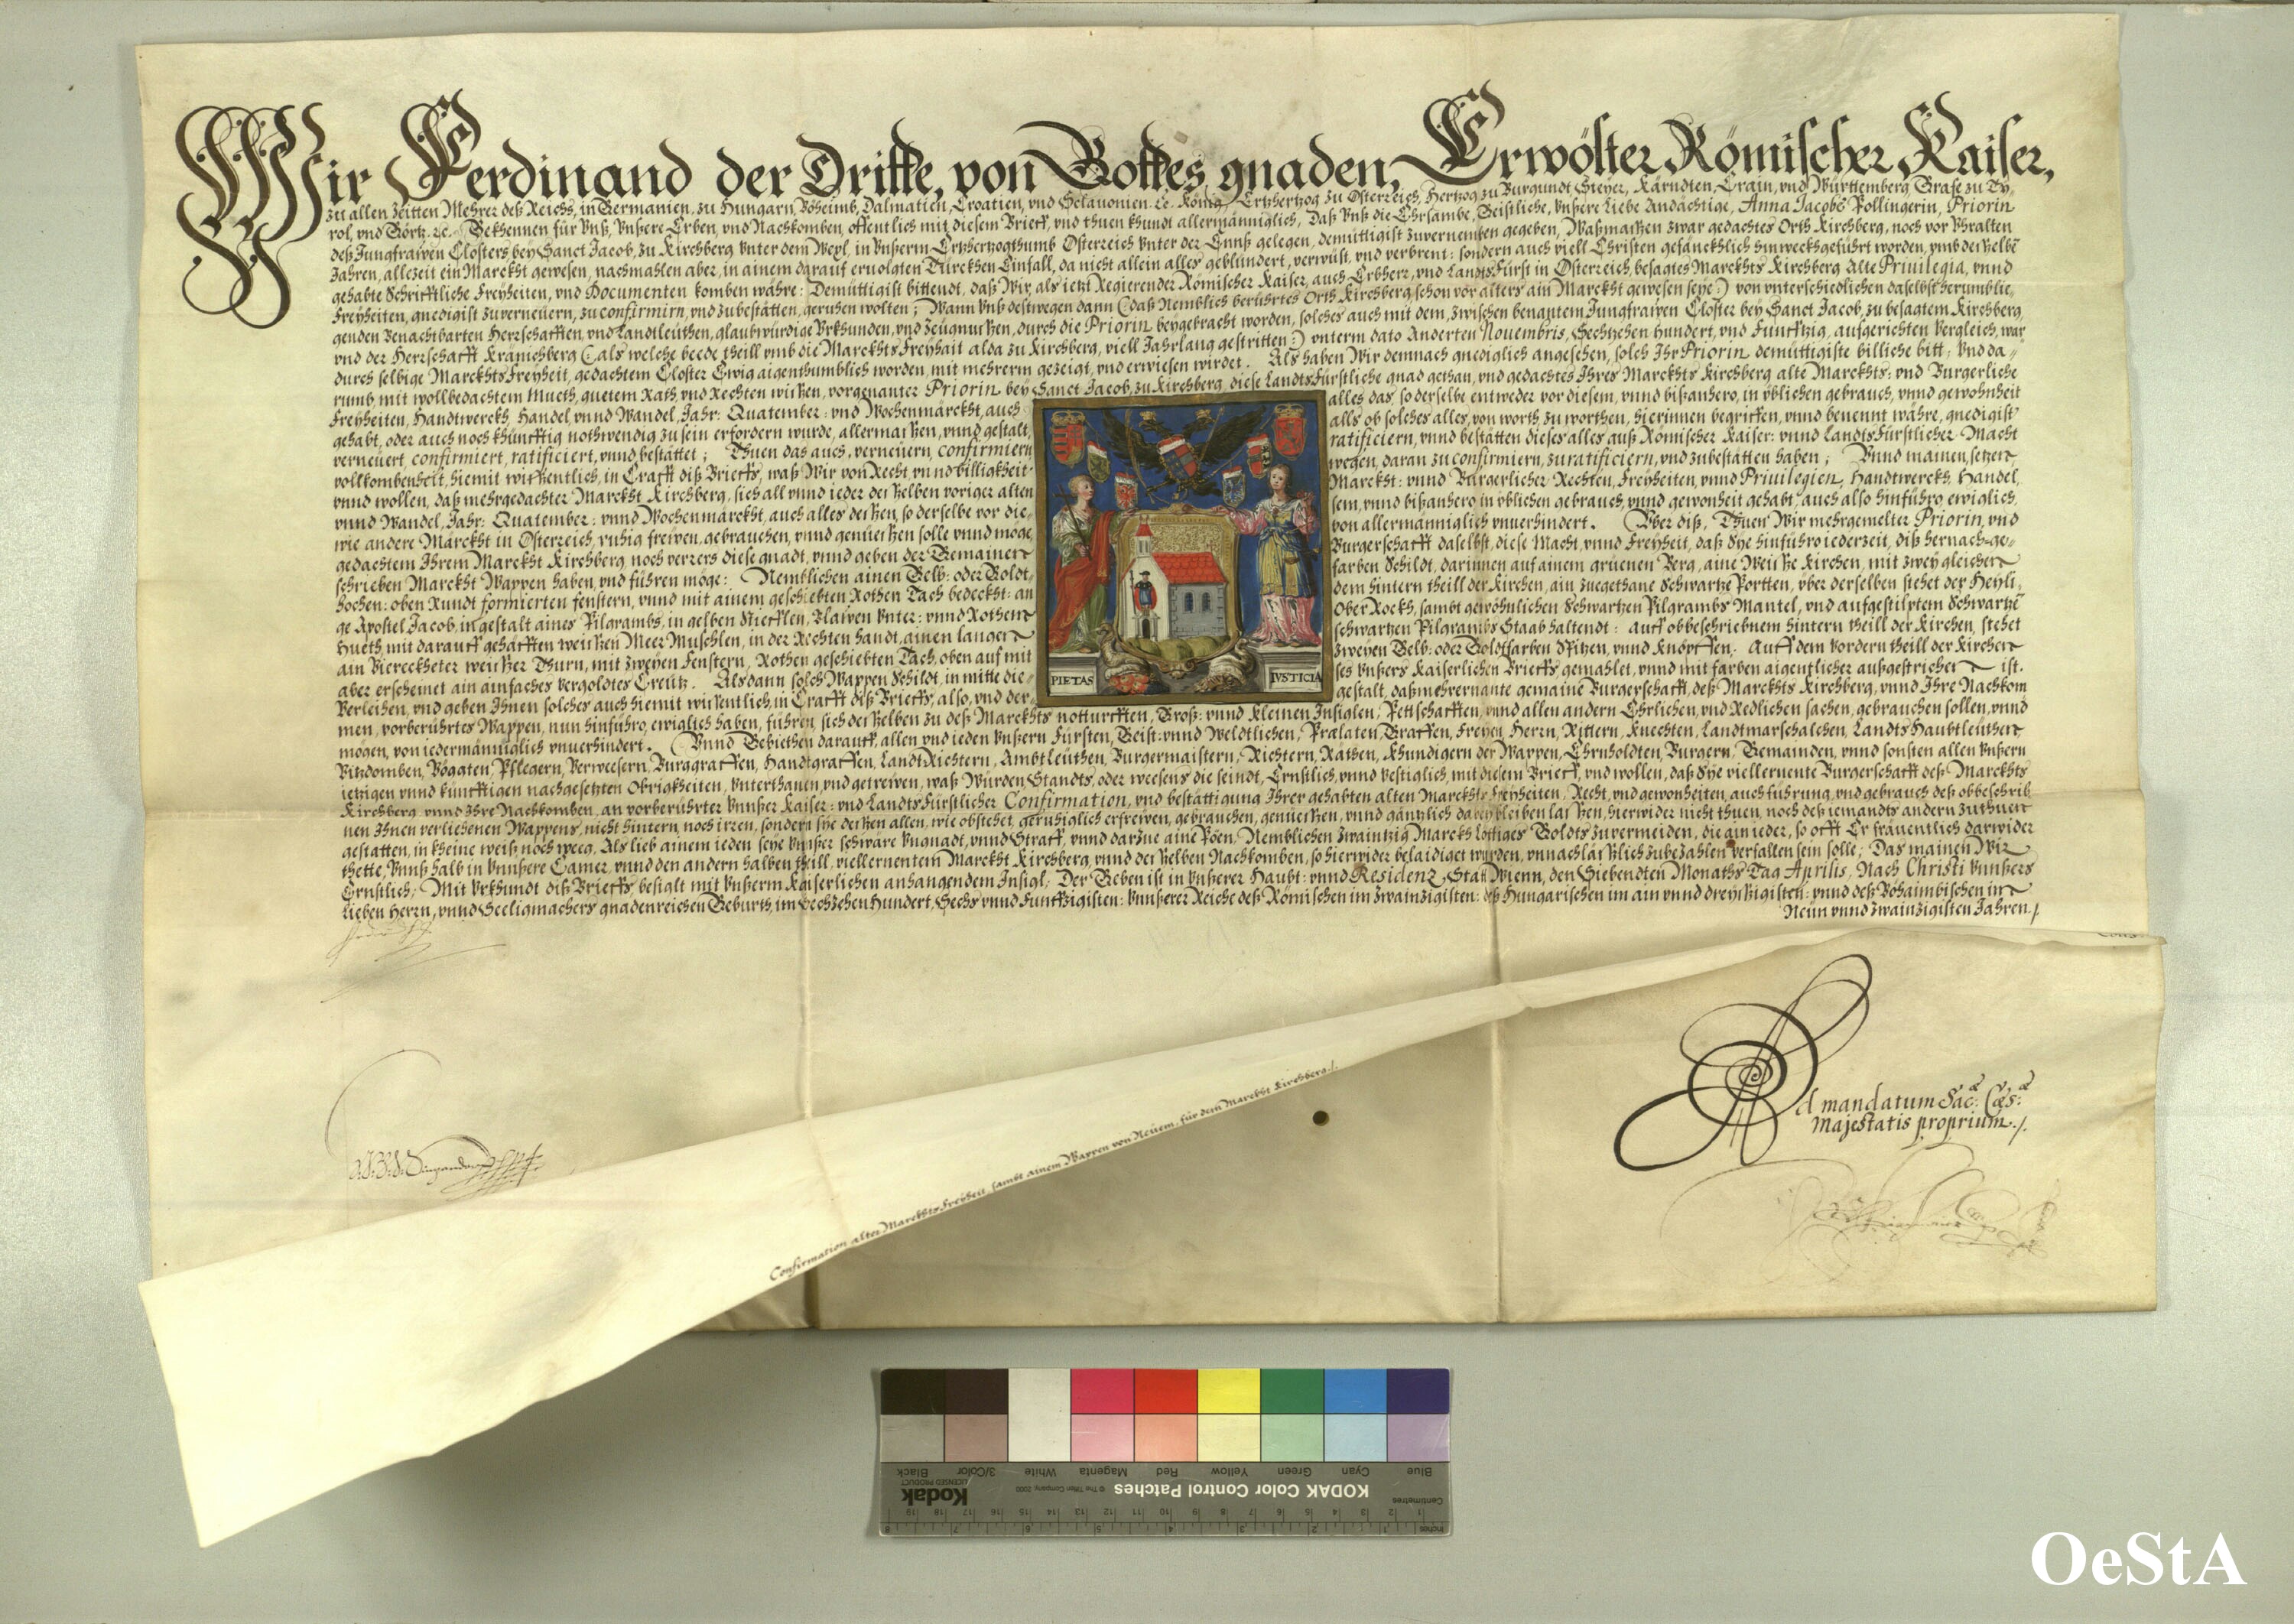 Wir Ferdinand der Dritte, von Gottes gnaden, Erwölter Römischer Kaiser,
zu allen Zeitten Mehrer deß Reichs, in Germanien, zu Hungarn, Böheimb, Dalmatien, Croatien, vnd Sclauonien. ec. König, Ertzhertzog zu Österreich, Hertzog zu Burgundt, Steyer, Kärndten, Crain, vnd Württemberg, Grafe zu Ty¸
rol, vnd Görtz. ec. Bekhennen für Vnß, Vnßere Erben, vnd Nachkomben, offentlich mit diesem Brieff, vnd thuen khundt allermänniglich, Daß Vnß die Ehrsambe, Geistliche, Vnßere Liebe Andächtige, Anna Jacobe Pollingerin, Priorin
deß Jungfrawen Closters bey Sanct Jacob, zu Kirchberg Vnter dem Wexl, in Vnßerm Ertzhertzogthumb Österreich Vnter der Ennß gelegen, demüttigist zuvernemben gegeben, Waßmassen zwar gedachtes Orth Kirchberg, noch vor Vhralten
Jahren, allezeit ein Marckht gewesen, nachmahlen aber, in ainem darauf eruolgten Türckhen Einfall, da nicht allein alles geblündert, verwüst, vnd verbrent: sondern auch viell Christen gefäncklich hinweckhgeführt worden, vmb derselbē
gehabte Schrifftliche Freyheiten, vnd Documenten komben währe: Demüttigist bittendt, daß Wir, als ietzt Regierender Römischer Kaiser, auch Erbherr, vnd LandtsFürst in Österreich, besagtes Marckhts Kirchberg Alte Priuilegia, vnnd
Freyheiten, gnedigist zuverneuern, zu confirmirn, vnd zubestätten, geruhen wolten; Wann Vnß destwegen dann (:daß Nemblich berührtes Orth Kirchberg schon vor alters ain Marckht gewesen seye:) von vnterschiedlichen daselbst herumblie¸
genden Benachtbarten Herrschafften, vnd Landtleuthen, glaubwürdige Vrkhunden, vnd Zeugnußen, durch die Priorin beygebracht worden, solches auch mit dem, zwischen benantem Jungfrawen Closter bey Sanct Jacob, zu besagtem Kirchberg,
vnd der Herrschafft Kränichberg (:als welche beede theill vmb die MarckhtsFreyhait alda zu Kirchberg, viell Jahr lang gestritten:) vnterm dato Anderten Nouembris, Sechzehen hundert, vnd Funfftzig, aufgerichten Vergleich, war
durch selbige MarckhtsFreyheit, gedachtem Closter Ewig aigenthumblich worden, mit mehrerm gezeigt, vnd erwiesen wirdet. Als haben Wir demnach gnediglich angesehen, solch Ihr Priorin demüttigiste billiche bitt; Vnd da¸
rumb, mit wollbedachtem Mueth, guetem Rath, vnd Rechten wißen, vorgenanter Priorin bey Sanct Jacob, zu Kirchberg, diese LandtsFürstliche gnad gethan, vnd gedachtes Ihres Marckhts Kirchberg alte Marckhts: vnd Burgerliche
Freyheiten, Handtwerckh, Handel, vnnd Wandel, Jahr: Quatember: vnd Wochenmärckht, auch alles das, so derselbe entweder vor diesem, vnnd bißanhero, in yblichen gebrauch, vnnd gewohnheit
gehabt, oder auch noch khünfftig nothwendig zu sein erfordern wurde, allermaßen, vnnd gestalt, alls ob solches alles, von worth, zu worthen, hierinnen begriffen, vnnd benennt währe, gnedigist
verneuert, confirmiert, ratificiert, vnnd bestättet; Thuen das auch, verneuern, confirmiern, ratificiern, vnnd bestätten dieses alles auß Römischer Kaiser: vnnd LandtsFürstlicher Macht
vollkombenheit, hiemit wißentlich, in Crafft diß Brieffs, waß Wir von Recht, vnnd billigkheit: wegen, daran zu confirmiern, zu ratificiern, vnd zubestätten haben; Vnnd mainen, setzen
vnnd wollen, daß mehrgedachter Marckht Kirchberg, sich all vnnd ieder derselben voriger alten Marckht: vnnd Burgerlicher Rechten, Freyheiten, vnnd Priuilegien, Handtwerckh, Handel,
vnnd Wandel, Jahr: Quatember: vnnd Wochenmärckht, auch alles deßen, so derselbe vor die¸ sem, vnnd bißanhero in yblichen gebrauch, vnnd gewonheit gehabt, auch also hinführo ewiglich,
wie andere Märckht in Österreich, ruhig freiwen, gebrauchen, vnnd genüeßen solle vnnd möge, von allermänniglich vnuerhindert. Vber diß, Thuen Wir mehrgemelter Priorin, vnd
gedachtem Ihrem Marckht Kirchberg, noch verrers diese gnadt, vnnd geben der Gemainen Burgerschafft daselbst, diese Macht, vnnd Freyheit, daß Sye hinführo iederzeit, diß hernach ge¸
schrieben Marckht Wappen haben, vnd führen möge: Nemblichen ainen Gelb: oder Goldt¸ farben Schildt, darinnen auf ainem grüenen Berg, aine Weiße Kirchen, mit zwey gleichen
hochen: oben Rundt formierten fenstern, vnnd mit ainem geschiebten Rothen Tach bedeckht: an dem hintern theill der Kirchen, ain zuegethane Schwartze Portten, yber derselben stehet der Heyli¸
ge Apostel Jacob, in gestalt aines Pilgrambs, in gelben Stiefflen, Blawen Vnter: vnnd Rothen Ober Rockh, sambt gewöhnlichen Schwartzen Pilgrambs Mantel, vnd aufgestilptem Schwartzē
Hueth, mit darauff gehäfften weißen Meer Muschlen, in der Rechten handt, ainen langen schwartzen Pilgrambs Staab haltendt: auff obbeschriebnem hintern theill der Kirchen, stehet
ain Viereckheter weißer Thurn, mit zweyen Fenstern, Rothen geschiebten Tach, oben auf mit zweyen Gelb: oder Goldtfarben Spitzen, vnnd Knöpffen. Auff dem vordern theill der Kirchen
aber erscheinet ain ainfaches vergoldtes Creütz. Alsdann solch Wappen Schildt, in mitte die¸ ses Vnßers Kaiserlichen Brieffs gemahlet, vnnd mit farben aigentlicher außgestrichen ist.
Verleihen, vnd geben Ihnen solches auch hiemit wißentlich, in Crafft diß Brieffs, also, vnd der¸ gestalt, daß mehrernante gemaine Burgerschafft, deß Marckhts Kirchberg, vnnd Ihre Nachkom
men, vorberührtes Wappen, nun hinführo, ewiglich haben, führen, sich desselben zu deß Marckhts notturfften, Groß: vnnd Kleinen Insiglen, Pettschafften, vnnd allen andern Ehrlichen, vnd Redlichen sachen, gebrauchen sollen, vnnd
mögen, von iedermänniglich vnuerhindert. Vnnd Gebiethen darauff, allen vnd ieden Vnßern Fürsten, Geist: vnnd Weldtlichen, Prælaten, Graffen, Freyen, Herrn, Rittern, Knechten, Landtmarschalchen, LandtsHaubtleüthen
Vitzdomben, Vöggten, Pflegern, Verweesern, Burggraffen, Handtgraffen, LandtRichtern, Ambtleüthen, Burgermaistern, Richtern, Räthen, Khundigern der Wappen, Ehrnholdten, Burgern, Gemainden, vnnd sonsten allen Vnßern
ietzigen vnnd künfftigen nachgesetzten Obrigkheiten, Vnterthanen, vnd getrewen, waß Würden, Standts, oder weesens die seindt, Ernstlich, vnnd Vestiglich, mit diesem Brieff, vnd wollen, daß Sye viellernente Burgerschafft deß Marckhts
Kirchberg, vnnd Ihre Nachkomben, an vorberührter Vnnßer Kaiser: vnd LandtsFürstlicher Confirmation, vnd bestättigung Ihrer gehabten alten Marckhts Freyheiten, Recht, vnd gewonheiten, auch führung, vnd gebrauch deß obbeschrib
nen Ihnen verliehenen Wappens, nicht hintern, noch irren, sondern sye deßen allen, wie obstehet, geruhiglich erfreiwen, gebrauchen, genüeßen, vnnd gäntzlich darbey bleiben laßen, hierwider nicht thuen, noch deß iemandts andern zuthuen
gestatten, in kheine weiß, noch weeg, Als lieb ainem ieden seye Vnnßer schwäre Vngnadt, vnnd Straff, vnnd darzue aine Pöen, Nemblichen Zwaintzig Marckh Löttiges Goldts zuvermeiden, die ain ieder, so offt Er fräuentlich darwider
thette, Vnnß halb in Vnnßere Camer, vnnd den andern halben theill, viellernentem Marckht Kirchberg, vnnd derselben Nachkomben, so hierwider belaidiget wurden, vnnachläßlich zubezahlen verfallen sein solle; Das mainen Wir
Ernstlich; Mit Vrkhundt diß Brieffs, besiglt mit Vnßerm Kaiserlichen anhangendem Insigl; Der Geben ist in Vnßerer Haubt: vnnd Residenz Statt Wienn, den Siebendten Monaths Tag Aprilis, Nach Christi Vnnßers
Lieben Herrn, vnnd Seeligmachers gnadenreichen Geburth, im Sechzehen hundert, Sechs vnnd Funfftzigisten: Vnnßerer Reiche deß Römischen im Zwainzigisten: deß Hungarischen im ain vnnd dreyßigisten: vnnd deß Böhaimbischen im
Neün vnnd Zwainzigisten Jahren./.
PIETAS
IVSTICIA
Ad mandatum Sac: Cæs:
Majestatis proprium./.
Confirmation alter Marckhts Freyheit, sambt ainem Wappen von Neuem, für dem Marckht Kirchberg./.
Kodak
LICENSED PRODUCT
KODAK Color Control Patches
© The Tiffen Company, 2000
Blue
Cyan
Green
Yellow
Red
Magenta
White
3/Color
Black
Centimetres
Inches
1 2 3 4 5 6 7 8 9 10 11 12 13 14 15 16 17 18 19
1 2 3 4 5 6 7 8
OeStA